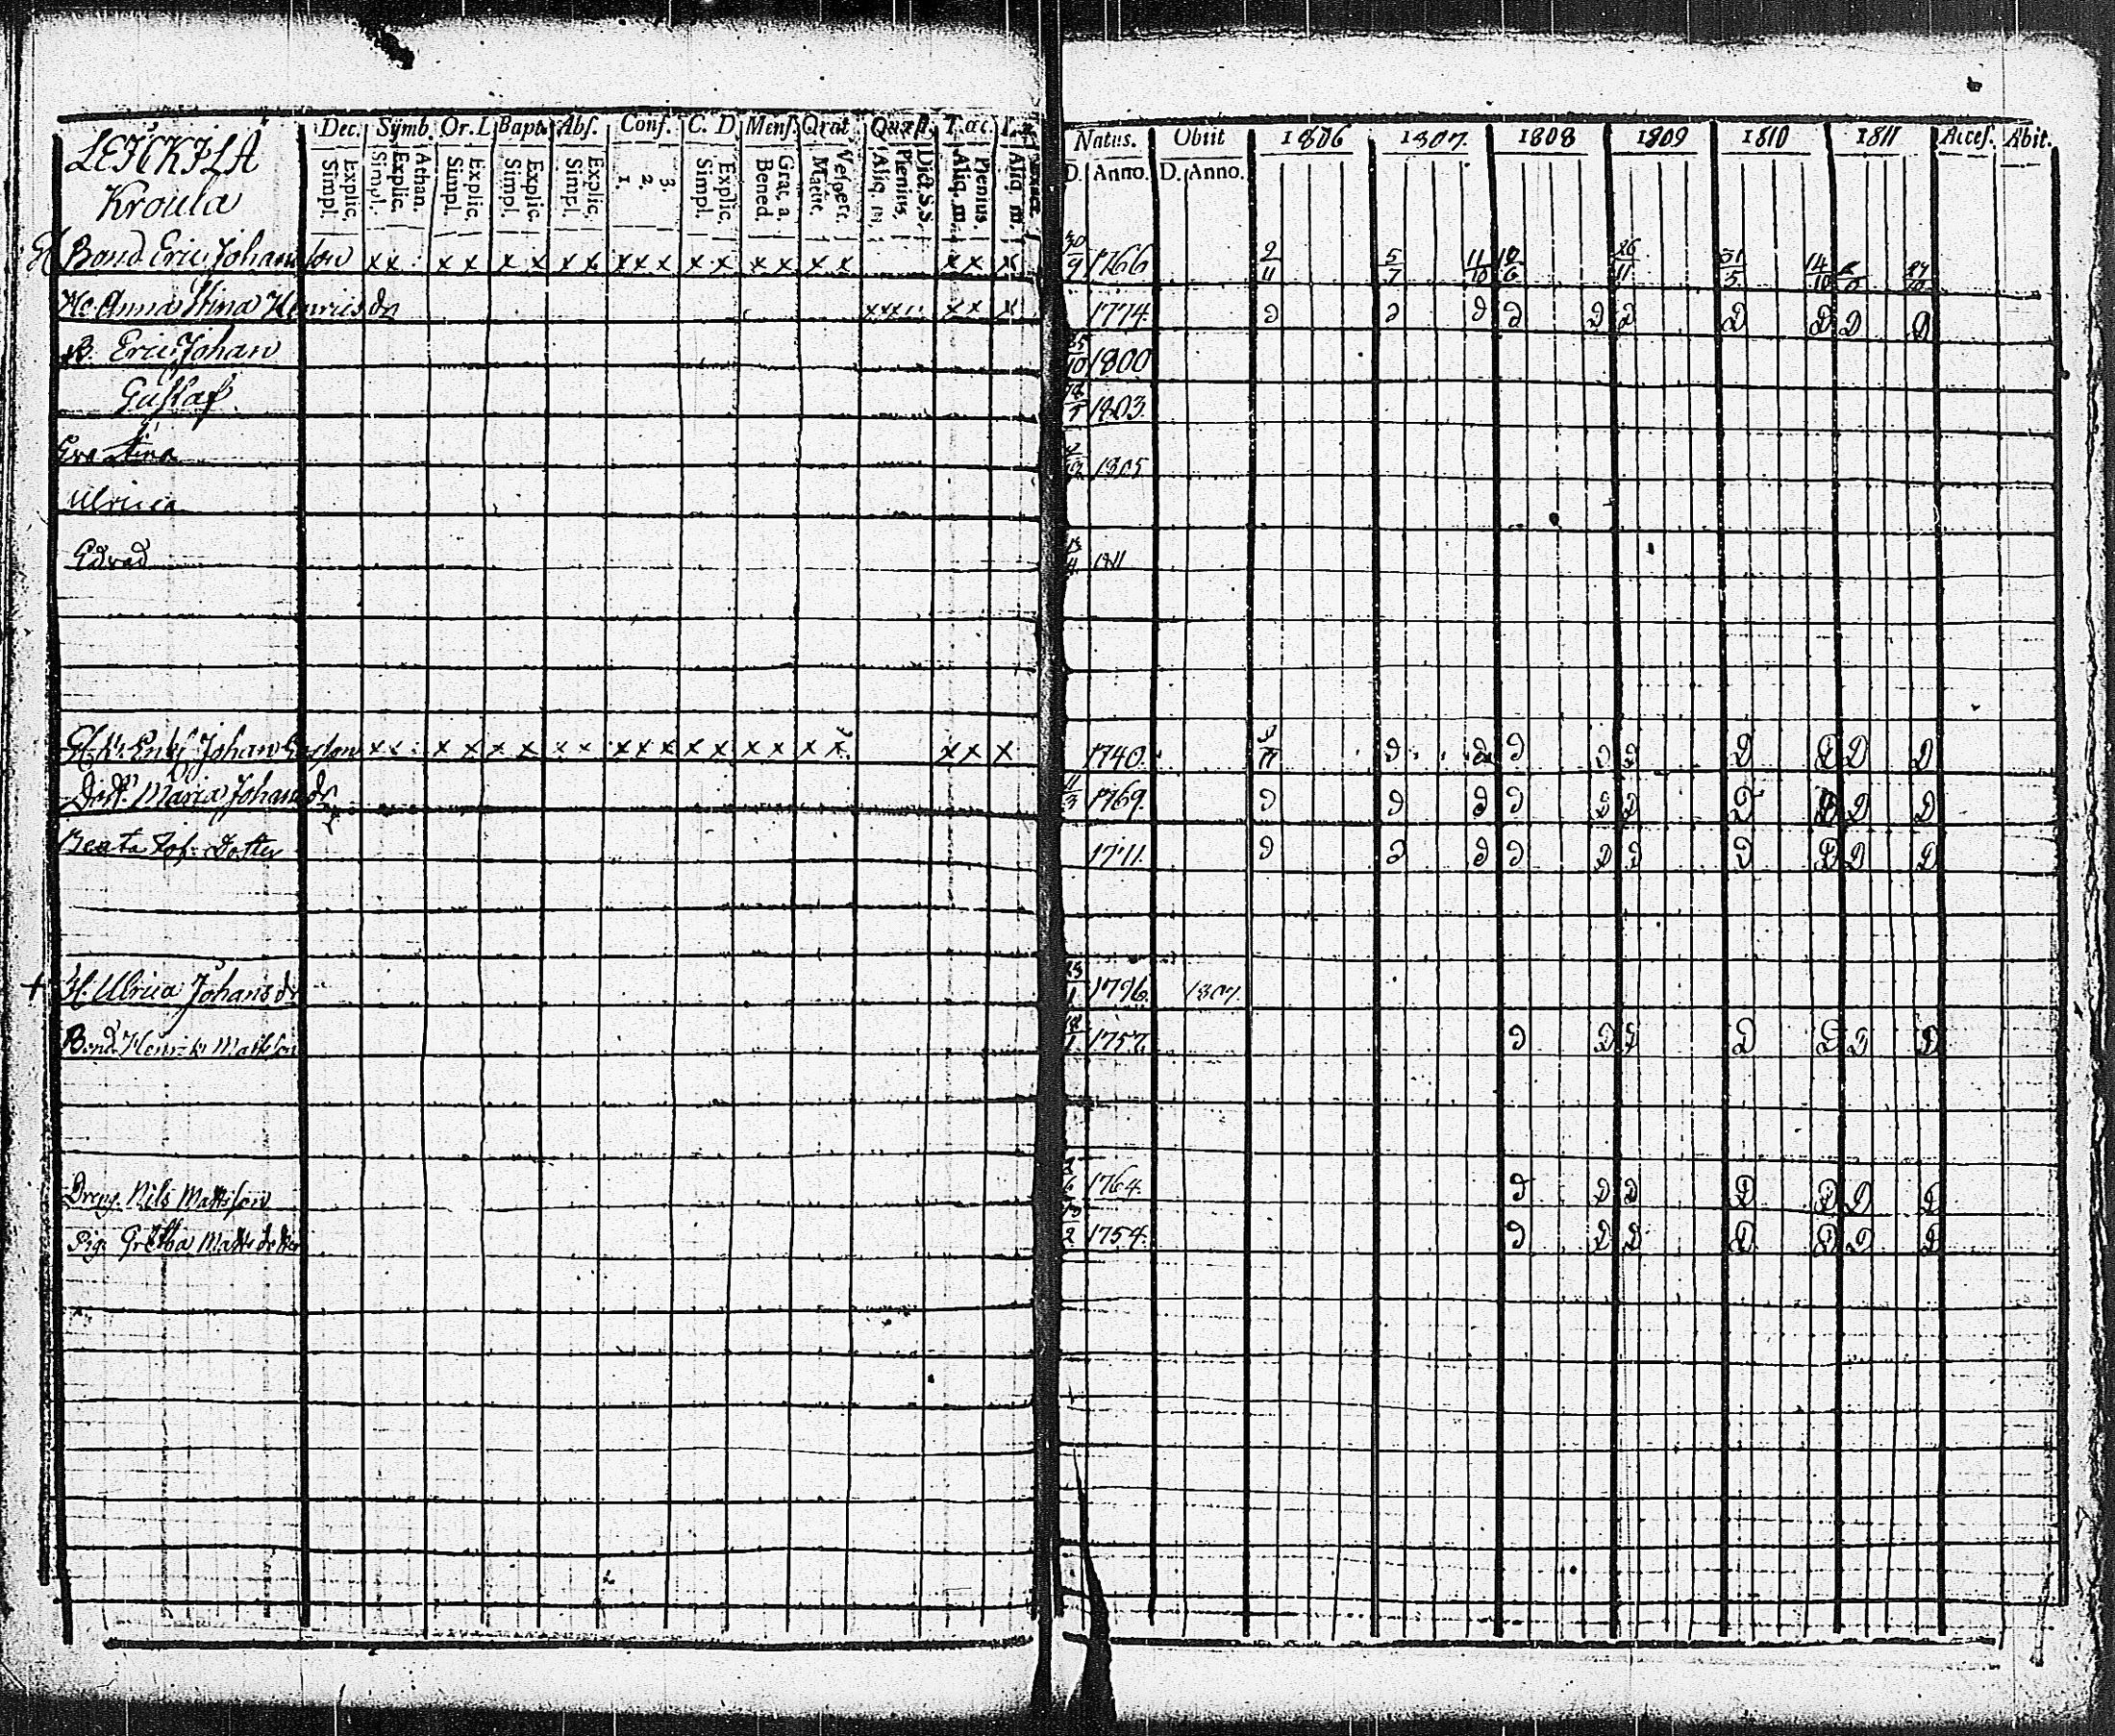 LEICKILÄ
Kroula
Dec. Symb. Or. D. Bapt. Abs. Conf. C. D Mens. Orat. Quæst. T. ac.
Simpl. Explic. Simpl. Explic. Athan. Simpl. Explic. Simpl. Explic. Simpl. Explic. 1. 2. 3. Simpl. Explic. Bened. Grat. a. Matut. Vespert. Aliq. m. Plenius, Dict. S. S. Aliq. m. Plenius. Aliq. m.
Natus. Obiit 1806 1807. 1808 1809 1810 1811 Acces. Abit.
D. Anno. D. Anno.
Bond. Eric Johansson x x x x x x x x x x x x x x x x x x x x 30/9 1766 2/11 5/7 11/10 26/11 31/5 14/10
H: Anna Stina Henricsdr x x x x x x 1774 D D D D D D D D D D
Eric Johan 1800
Gustaf 1803
Eva Stina 1805
Ulrica
Edvard 1811
Johan Ericsson x x x x x x x x x x x x x x x x x x x x 1740 D D D D D D D D D
Maria Johansdr 11/3 1769. D D D D D D D D D D
Beata Joh: Dotter 1711. D D D D D D D D D D
+ H. Ulrica Johansdr 1796. 1807.
Bond. Henrik Matsson 1757. D D D D D D D
Dreng. Nils Mattsson 1764. D D D D D D D
Pig. Gretha Matts dotter 1754. D D D D D D D